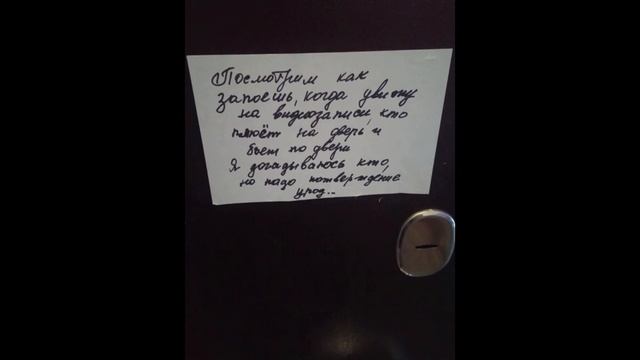 Посмотрим как
запоёшь, когда увижу
на видиозаписи, кто
плюёт на дверь и
бьет по двери
Я догадываюсь кто,
но надо потверждение
урод...